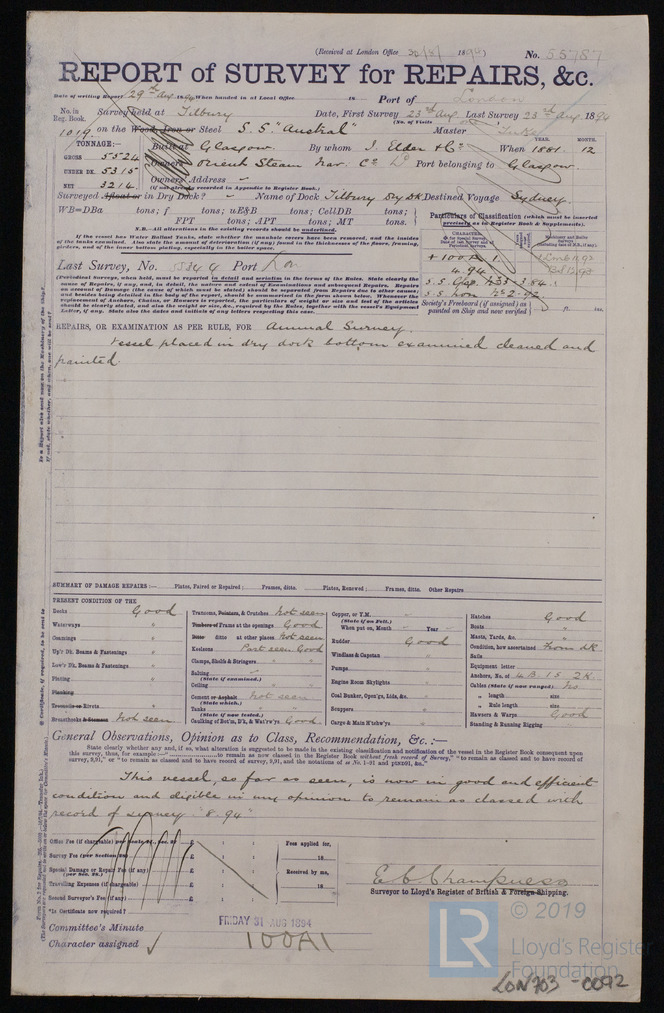 (Received at London Office 30/8/ 1894) No. 55787
REPORT of SURVEY for REPAIRS, &c.
State of writing Report 29th Aug 1894 When handed in at Local Office 18 Port of London
No. in Survey held at Tilbury Date, First Survey 23rd Aug Last Survey 23rd Aug 1894
Reg. Book. (No. of Visits Master
1019 on the Wood, Iron or Steel S.S. "Austral"
TONNAGE:— Built at Glasgow. By whom J. Elder & Co. When 1881. 12
YEAR. MONTH.
GROSS 5524 Owners Orient Steam Nav. Co. Ld Port belonging to Glasgow.
UNDER DK. 5315 Owners' Address
NET 3214 (if not already recorded in Appendix to Register Book.)
Surveyed Afloat or in Dry Dock? Name of Dock Tilbury Dry Dk Destined Voyage Sydney.
WB=DBa tons; f tons; uE&B tons; CellDB tons;
FPT tons; APT tons; MT tons.
N.B.—All alterations in the existing records should be underlined.
If the vessel has Water Ballast Tanks, state whether the manhole covers have been removed, and the insides
of the tanks examined. Also state the amount of deterioration (if any) found in the thicknesses of the floors, framing,
girders, and of the inner bottom plating, especially in the boiler space.
Particulars of Classification (which must be inserted
precisely as in Register Book & Supplements).
+ 100 A 1.
4.94
S.S. Lon. No 2-92
Last Survey, No. Port Lon
(Periodical Surveys, when held, must be reported in detail and seriatim in the terms of the Rules. State clearly the
name of Repairs, if any, and, in detail, the nature and extent of Examinations and subsequent Repairs. Repairs
on account of Damage (the cause of which must be stated) should be separated from Repairs due to other causes;
and besides being detailed in the body of the report, should be summarized in the form shown below. Whenever the
Society's Freeboard (if assigned) as
painted on Ship and now verified
REPAIRS, OR EXAMINATION AS PER RULE, FOR Annual Survey.
Vessel placed in dry dock bottom examined cleaned and
painted.
SUMMARY OF DAMAGE REPAIRS:— Plates, Faired or Repaired; Frames, ditto. Plates, Renewed; Frames, ditto. Other Repairs
PRESENT CONDITION OF THE
Decks Good
Waterways "
Comings "
Up'r Dk. Beams & Fastenings "
Low'r Dk. Beams & Fastenings "
Plating "
Planking
Treenails or Rivets "
Breasthooks & Stemson Not seen
Transoms, Pointers, & Crutches Not seen
Timbers of Frame at the openings Good
Ditto ditto at other places Not seen
Keelsons Part seen Good
Clamps, Shelfs & Stringers " "
Salting
(State if examined.)
Ceiling " "
Cement or Asphalt Not seen
(State which.)
Tanks
(State if now tested.)
Caulking of Bot'm, D'k, & Wat'rw'ys Good
Copper, or Y.M.
(State if on Felt.)
When put on, Month Year
Rudder Good
Windlass & Capstan "
Pumps "
Engine Room Skylights "
Coal Bunker, Open'gs, Lids, &c. "
Scuppers "
Cargo & Main H'tchw'ys "
Hatches Good
Boats "
Masts, Yards, &c. "
Condition, how ascertained From Dk
Sails
Equipment letter
Anchors, No. of 4 B. 1 S. 2 K.
Cables (State if now ranged) No
" length size
" Rule length size
Hawsers & Warps Good
Standing & Running Rigging "
General Observations, Opinion as to Class, Recommendation, &c.:—
State clearly whether any and, if so, what alteration is suggested to be made in the existing classification and notification of the vessel in the Register Book consequent upon
this survey, thus, for example:— to remain as now classed in the Register Book without fresh record of Survey," "to remain as classed and to have record of
survey, 9,91," or "to remain as classed and to have record of survey, 9,91, and the notations of ss No. 1–91 and pt ND91, &c."
This vessel, so far as seen, is now in good and efficient
condition and eligible in my opinion to remain as classed with
record of survey "8.94"
Office Fee (if chargeable) per £ : :
Survey Fee (per Section 28) £ : :
Special Damage or Repair Fee (if any) £ : :
(per Sec. 28.)
Travelling Expenses (if chargeable) £ : :
Second Surveyor's Fee (if any) £ : :
Fees applied for,
18
Received by me,
18
E C Champness
Surveyor to Lloyd's Register of British & Foreign Shipping.
*Is Certificate now required?
Committee's Minute FRIDAY 31 AUG 1894
Character assigned 100A1
LR
© 2019
Lloyd's Register
Foundation
LON703-0092